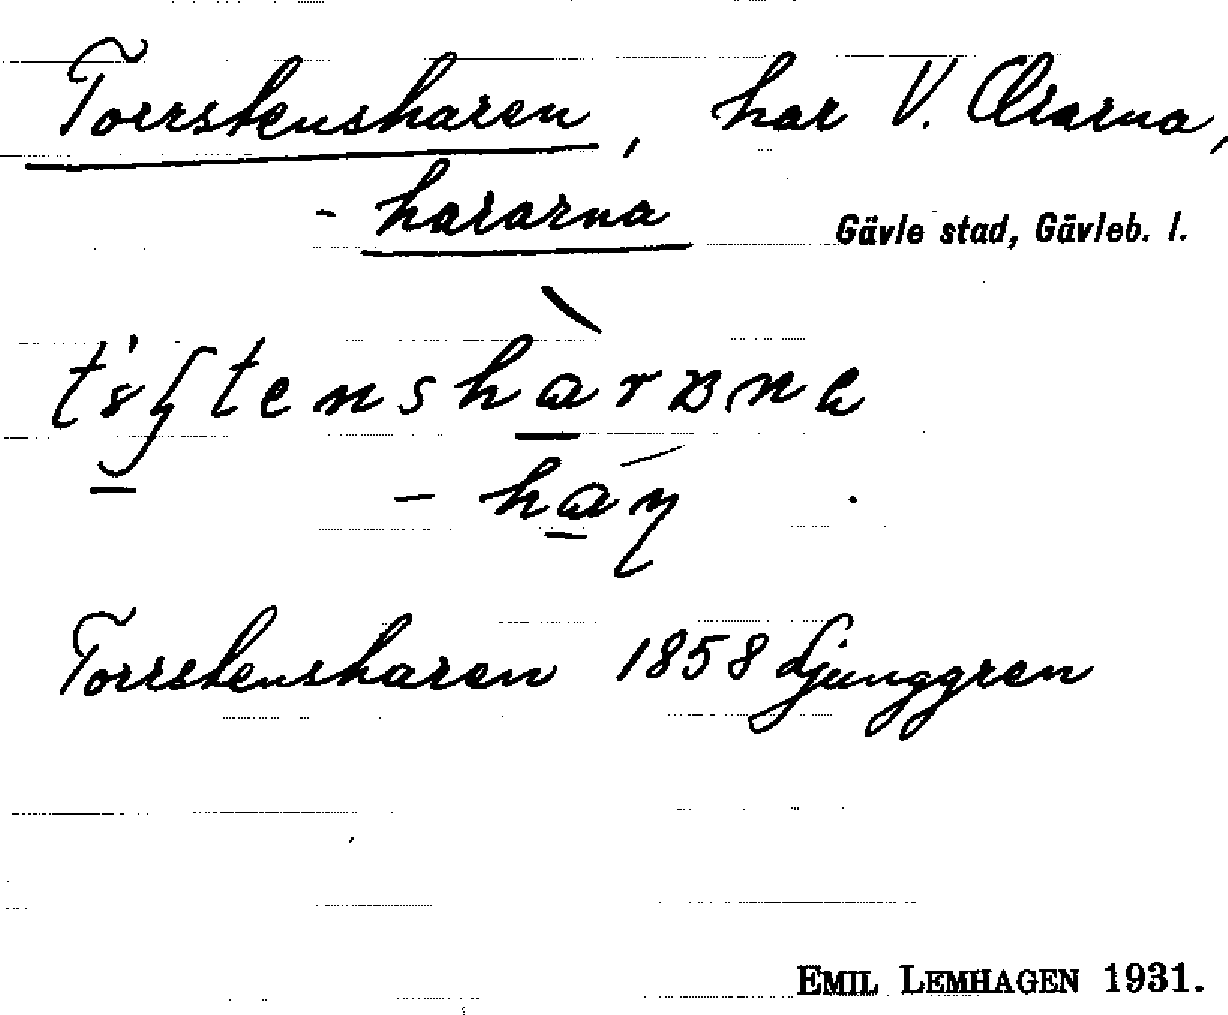 Torrstensharen, har V. Orarna,
- hararna
Gävle stad, Gävleb. l.
- hàɳ
Torrstensharen 1858 Ljunggren
EMIL LEMHAGEN 1931.